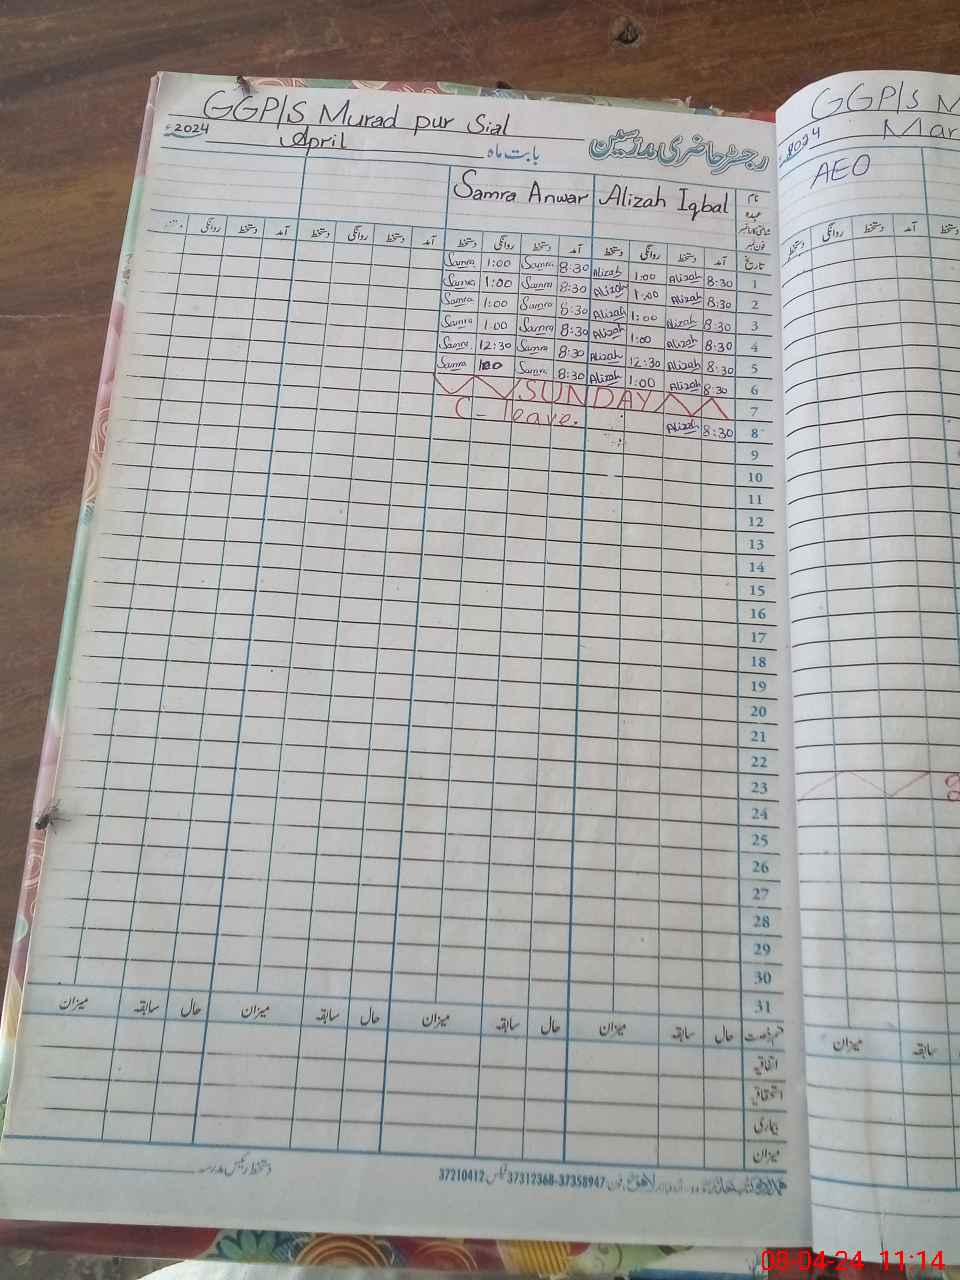 GGP/S Murad pur Sial
2024ء April بابت ماہ رجسٹر حاضری مدرسین
Samra Anwar Alizah Iqbal نام
عہدہ
دستخط روانگی دستخط آمد دستخط روانگی دستخط آمد دستخط روانگی دستخط آمد تاریخ
Samra 1:00 Samra 8:30 Alizah 1:00 Alizah 8:30 1
Samra 1:00 Samra 8:30 Alizah 1:00 Alizah 8:30 2
Samra 1:00 Samra 8:30 Alizah 1:00 Alizah 8:30 3
Samra 1:00 Samra 8:30 Alizah 1:00 Alizah 8:30 4
Samra 12:30 Samra 8:30 Alizah 12:30 Alizah 8:30 5
Samra 1:00 Samra 8:30 Alizah 1:00 Alizah 8:30 6
SUNDAY 7
C - leave. Alizah 8:30 8
9
10
11
12
13
14
15
16
17
18
19
20
21
22
23
24
25
26
27
28
29
30
31
میزان سابقہ حال میزان سابقہ حال میزان سابقہ حال میزان سابقہ حال قسم رخصت
اتفاقیہ
استحقاقیہ
بیماری
میزان
دستخط رئیس مدرسہ
لاہور فون 37358947-37312368 فیکس 37210412
GGP/S M
2024 Mar
AEO
دستخط روانگی دستخط آمد دستخط
میزان سابقہ
08-04-24 11:14